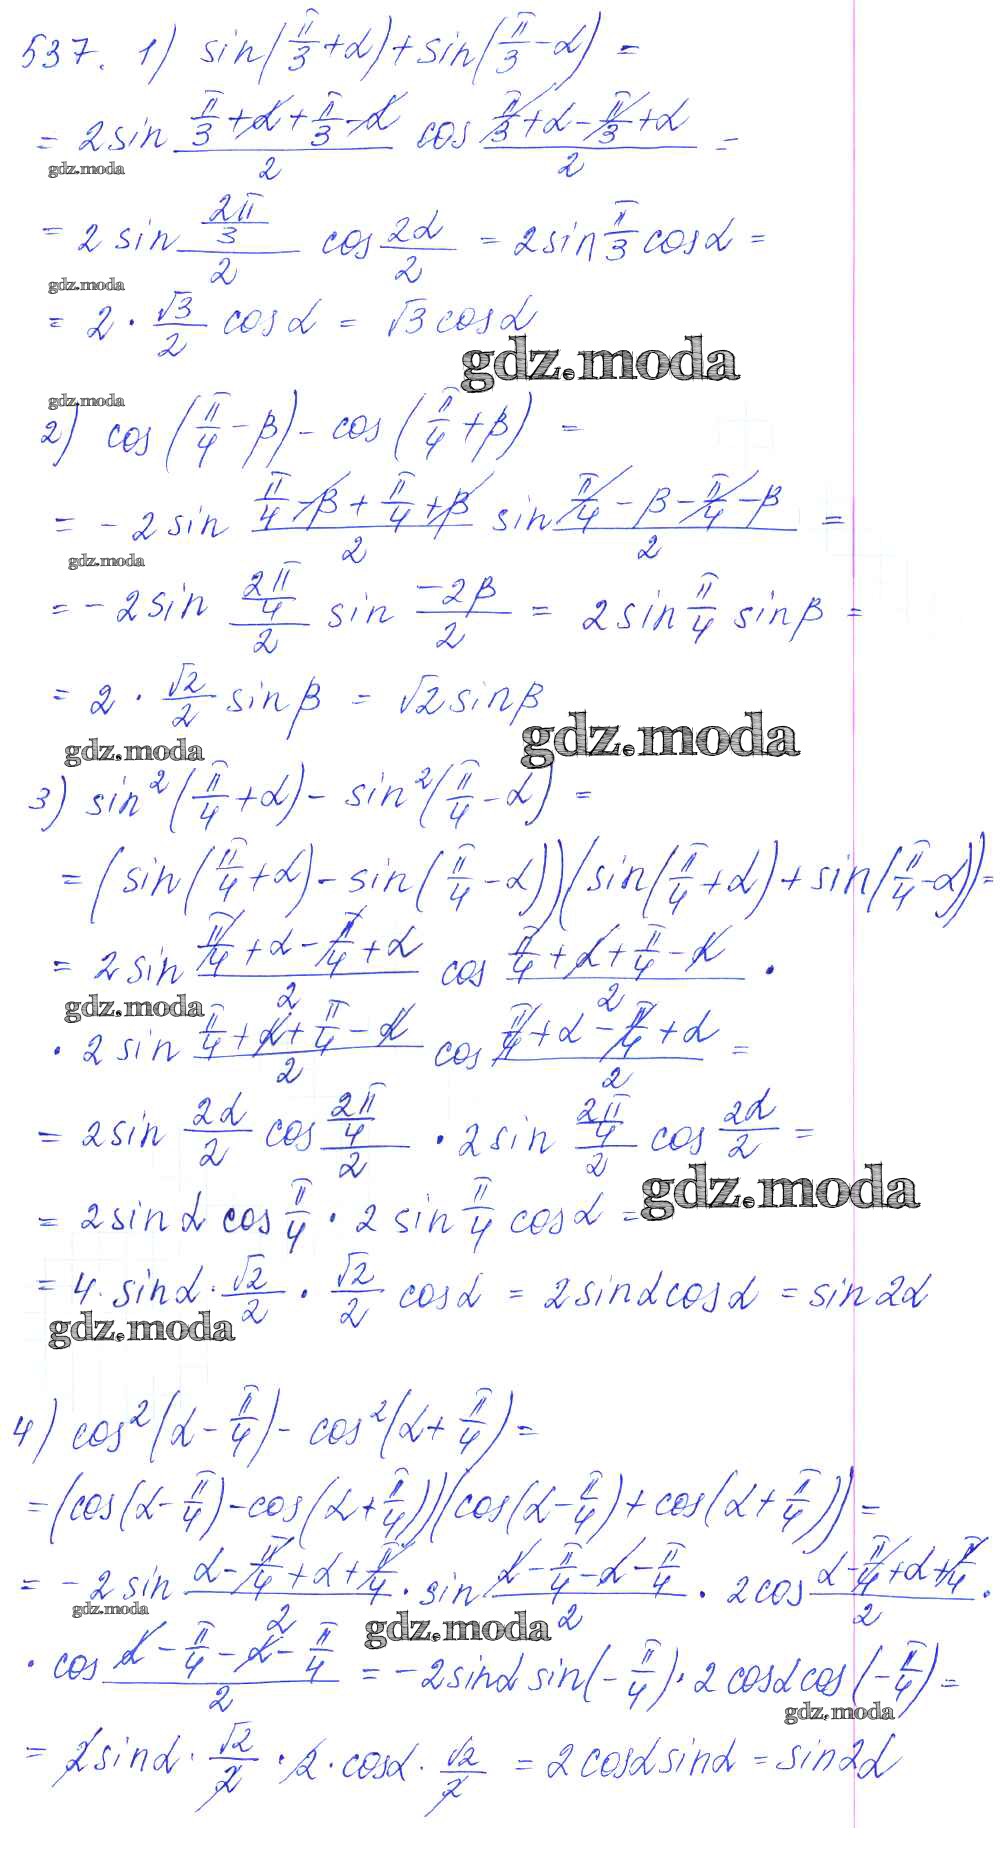 537. 1) sin(π/3+α)+sin(π/3-α) =
= 2sin (π/3+α+π/3-α)/2 cos (π/3+α-π/3+α)/2 =
gdz.moda
= 2 sin (2π/3)/2 cos 2α/2 = 2sin π/3 cosα =
gdz.moda
= 2 · √3/2 cosα = √3cosα
gdz.moda
gdz.moda
2) cos(π/4-β)-cos(π/4+β) =
= -2sin (π/4-β+π/4+β)/2 sin (π/4-β-π/4-β)/2 =
gdz.moda
= -2sin (2π/4)/2 sin (-2β)/2 = 2sin π/4 sinβ =
= 2 · √2/2 sinβ = √2sinβ
gdz.moda
gdz.moda
3) sin²(π/4+α)- sin²(π/4-α) =
= (sin(π/4+α)-sin(π/4-α))(sin(π/4+α)+sin(π/4-α))=
= 2sin (π/4+α-π/4+α)/2 cos (π/4+α+π/4-α)/2 ·
gdz.moda
· 2sin (π/4+α+π/4-α)/2 cos (π/4+α-π/4+α)/2 =
= 2sin 2α/2 cos (2π/4)/2 · 2sin (2π/4)/2 cos 2α/2 =
= 2sinα cos π/4 · 2sin π/4 cosα =
gdz.moda
= 4·sinα· √2/2 · √2/2 cosα = 2sinαcosα = sin2α
gdz.moda
4) cos²(α-π/4)-cos²(α+π/4)=
=(cos(α-π/4)-cos(α+π/4))(cos(α-π/4)+cos(α+π/4))=
= -2sin (α-π/4+α+π/4)/2 · sin (α-π/4-α-π/4)/2 · 2cos (α-π/4+α+π/4)/2 ·
gdz.moda
gdz.moda
· cos (α-π/4-α-π/4)/2 = -2sinα sin(-π/4)·2cosαcos(-π/4)=
gdz.moda
= 2sinα · √2/2 · 2·cosα · √2/2 = 2cosαsinα = sin2α